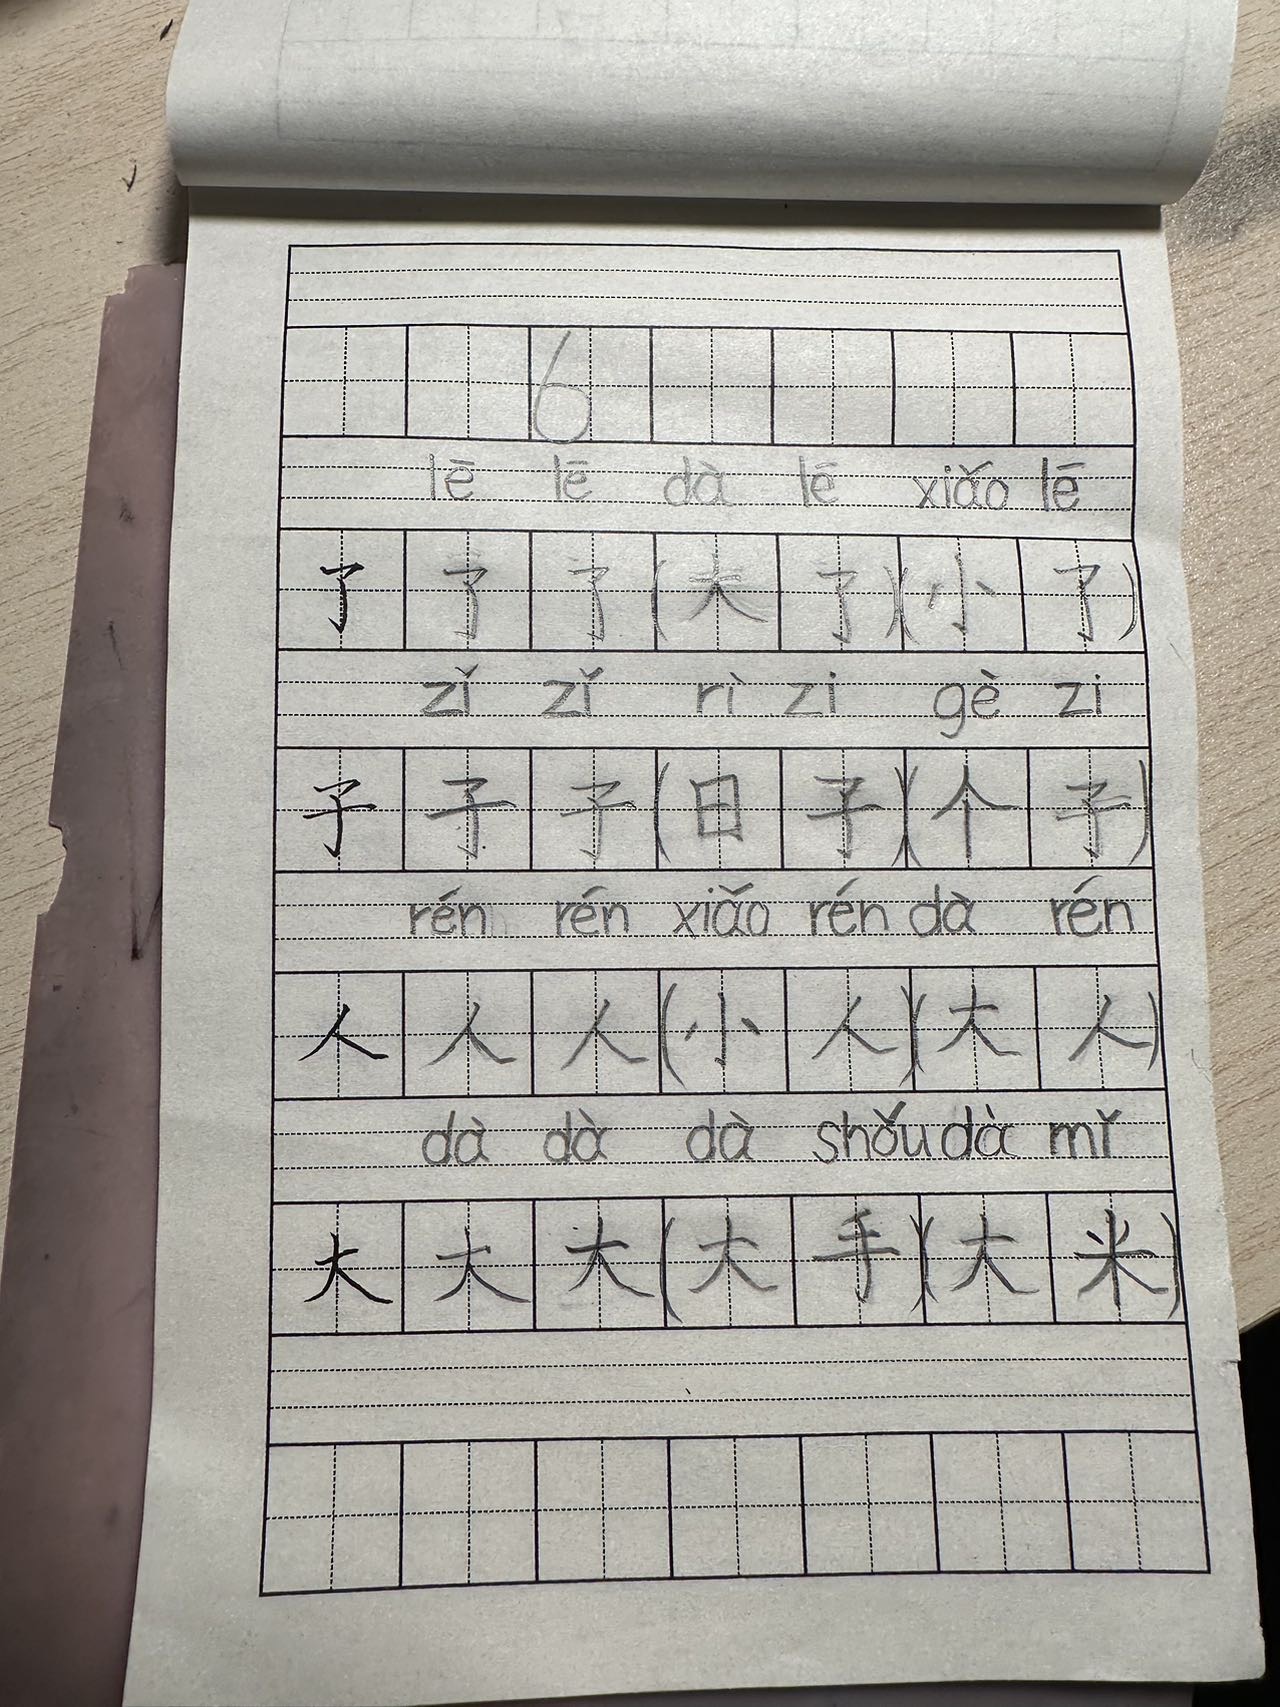 6
lē lē dà lē xiǎo lē
了 了 了 (大 了)(小 了)
zǐ zǐ rì zi gè zi
子 子 子 (日 子)(个 子)
rén rén xiǎo rén dà rén
人 人 人 (小 人)(大 人)
dà dà dà shǒu dà mǐ
大 大 大 (大 手)(大 米)